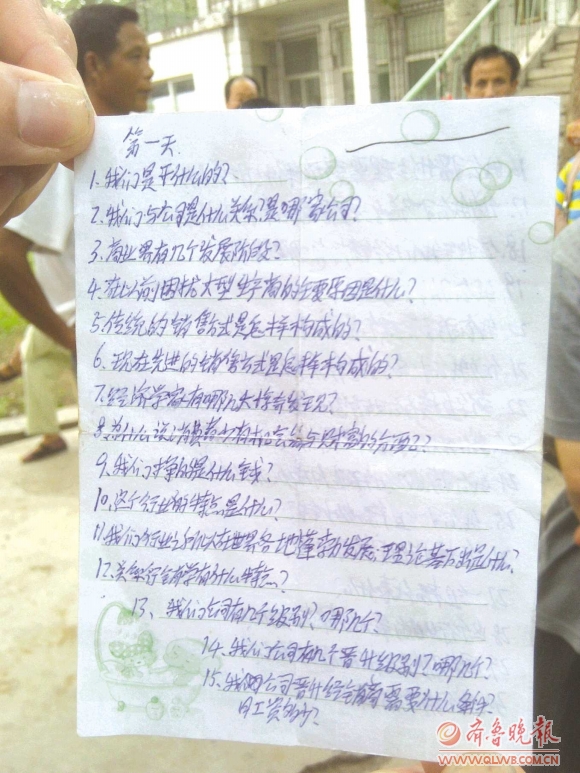 第一天.
1、我们是干什么的?
2、我们与公司是什么关系?是哪家公司?
3、商业界有几个发展阶段?
4、在以前困扰大型生产商的主要原因是什么?
5、传统的销售方式是怎样构成的?
6、现在先进的销售方式是怎样构成的?
7、经济学家有哪几大持奇发现?
8、为什么说消费者有
9、我们挣的是什么钱?
10、这个行业的特点是什么?
11、我们行业之所以在世界各地蓬勃发展、理论基石是什么?
12、关系行销学有什么特点?
13、我们公司有几个级别?哪几个?
14、我们公司有几个晋升级别?哪几个?
15、我们公司晋升经销商需要什么条件?
月工资多少?
齐鲁晚报
WWW.QLWB.COM.CN